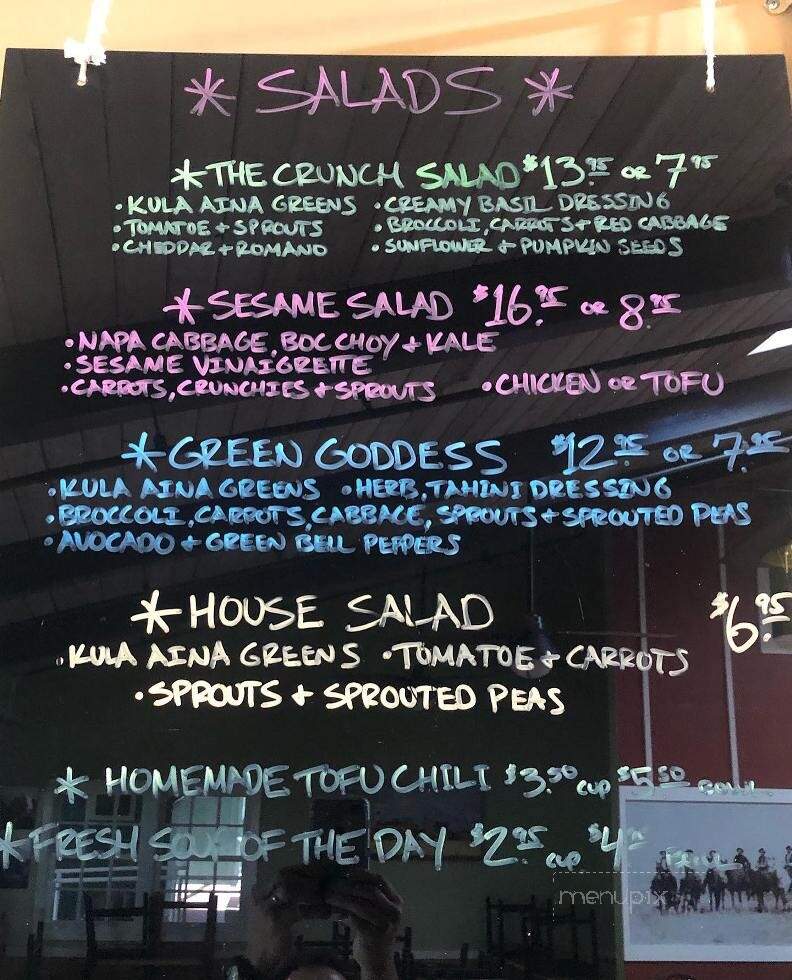 * SALADS *
* THE CRUNCH SALAD $13.95 or 7.95
• KULA AINA GREENS • CREAMY BASIL DRESSING
• TOMATOE + SPROUTS • BROCCOLI, CARROTS + RED CABBAGE
• CHEDDAR + ROMANO • SUNFLOWER + PUMPKIN SEEDS
* SESAME SALAD $16.95 or 8.95
• NAPA CABBAGE, BOC CHOY + KALE
• SESAME VINAIGRETTE
• CARROTS, CRUNCHIES + SPROUTS • CHICKEN or TOFU
* GREEN GODDESS $12.95 or 7.95
• KULA AINA GREENS • HERB, TAHINI DRESSING
• BROCCOLI, CARROTS, CABBAGE, SPROUTS + SPROUTED PEAS
• AVOCADO + GREEN BELL PEPPERS
* HOUSE SALAD $6.95
• KULA AINA GREENS • TOMATOE + CARROTS
• SPROUTS + SPROUTED PEAS
* HOMEMADE TOFU CHILI $3.50 CUP $5.50 BOWL
* FRESH SOUP OF THE DAY $2.95 CUP $4.95 BOWL
menupix